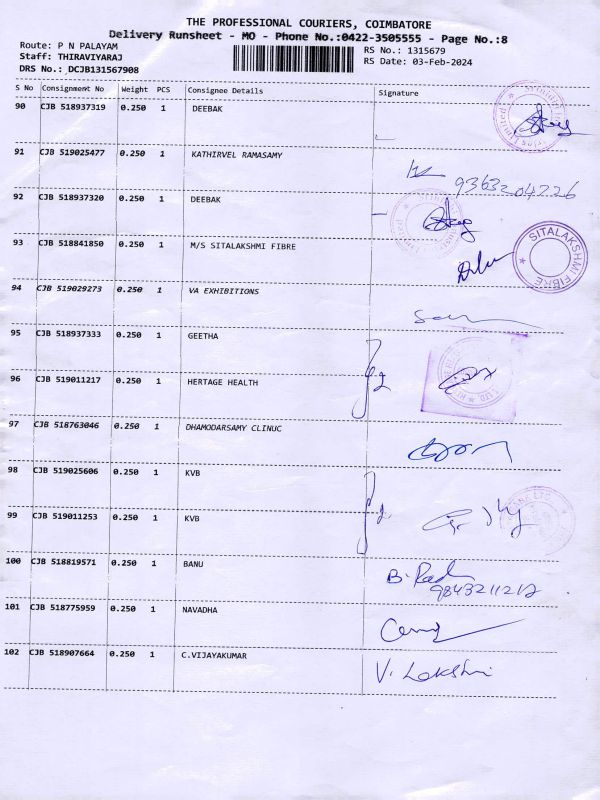 THE PROFESSIONAL COURIERS, COIMBATORE
Delivery Runsheet - MO - Phone No.:0422-3505555 - Page No.:8
Route: P N PALAYAM
RS No.: 1315679
Staff: THIRAVIYARAJ
RS Date: 03-Feb-2024
DRS No.: DCJB131567908
S No Consignment No Weight PCS Consignee Details Signature
90 CJB 518937319 0.250 1 DEEBAK
91 CJB 519025477 0.250 1 KATHIRVEL RAMASAMY
9363204726
92 CJB 518937320 0.250 1 DEEBAK
93 CJB 518841850 0.250 1 M/S SITALAKSHMI FIBRE
SITALAKSHMI FIBRE
94 CJB 519029273 0.250 1 VA EXHIBITIONS
95 CJB 518937333 0.250 1 GEETHA
96 CJB 519011217 0.250 1 HERTAGE HEALTH
97 CJB 518763046 0.250 1 DHAMODARSAMY CLINUC
98 CJB 519025606 0.250 1 KVB
99 CJB 519011253 0.250 1 KVB
100 CJB 518819571 0.250 1 BANU
9843211212
101 CJB 518775959 0.250 1 NAVADHA
102 CJB 518907664 0.250 1 C.VIJAYAKUMAR
V. Lakshmi